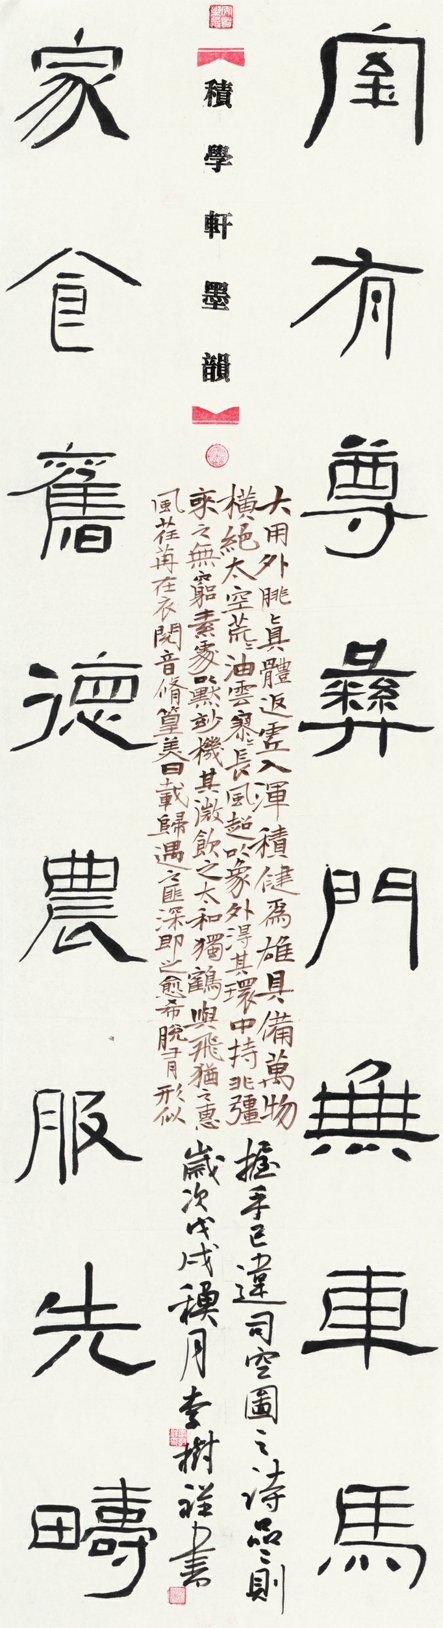 室有尊彝門無車馬
積學軒墨韻
大用外腓真體返虛入渾積健為雄具備萬物
橫絕太空荒〻油雲寥〻長風超以象外得其環中持非彊
來之無窮素處以默妙機其微飲之太和獨鶴與飛猶之惠
風荏苒在衣閱音脩篁美曰載歸遇之匪深即之愈希脫有形似
握手已違司空圖之詩品二則
歲次戊戌月李樹祥書
家食舊德農服先疇